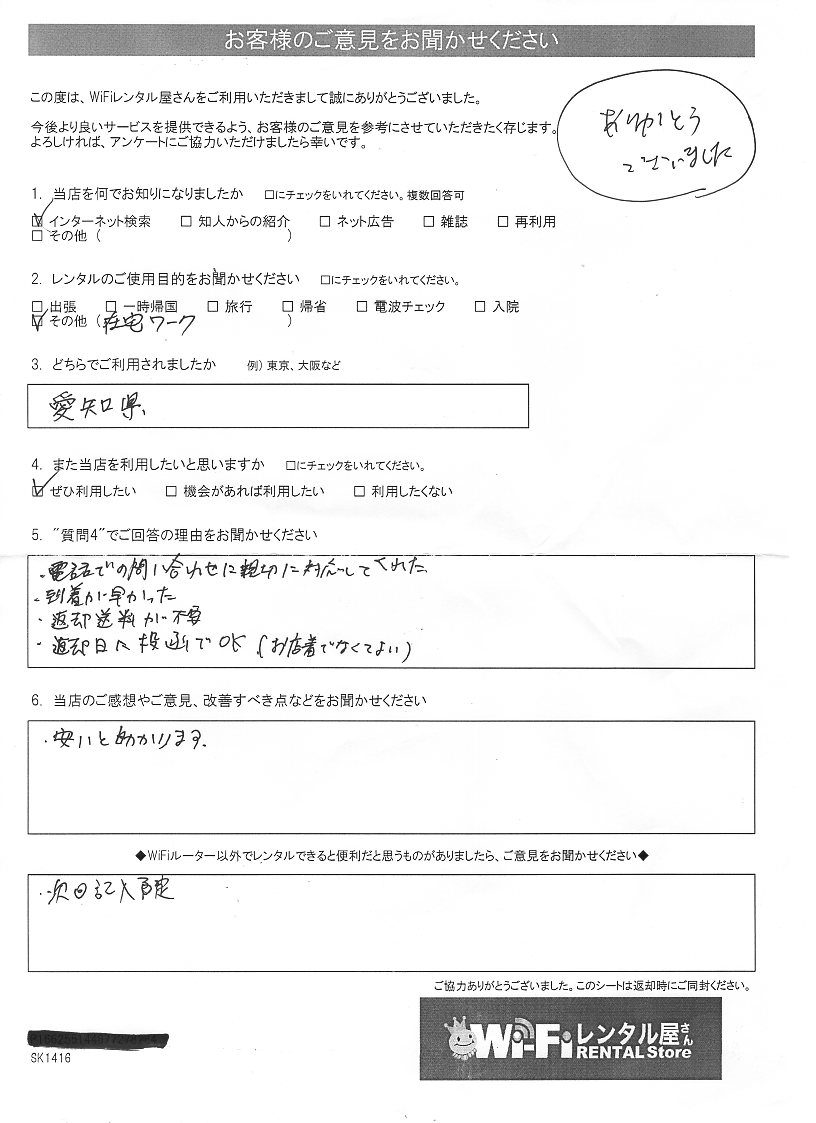 お客様のご意見をお聞かせください
この度は、WiFiレンタル屋さんをご利用いただきまして誠にありがとうございました。
今後より良いサービスを提供できるよう、お客様のご意見を参考にさせていただきたく存じます。
よろしければ、アンケートにご協力いただけましたら幸いです。
ありがとう
ございました
1. 当店を何でお知りになりましたか □にチェックをいれてください。複数回答可
☑ インターネット検索 □ 知人からの紹介 □ ネット広告 □ 雑誌 □ 再利用
□ その他 ( )
2. レンタルのご使用目的をお聞かせください □にチェックをいれてください。
□ 出張 □ 一時帰国 □ 旅行 □ 帰省 □ 電波チェック □ 入院
☑ その他 (在宅ワーク )
3. どちらでご利用されましたか 例) 東京、大阪など
愛知県、
4. また当店を利用したいと思いますか □にチェックをいれてください。
☑ ぜひ利用したい □ 機会があれば利用したい □ 利用したくない
5. "質問4"でご回答の理由をお聞かせください
・電話での問い合わせに親切に対応してくれた
・到着が早かった
・返却送料が不要
・返却日に投函でOK (お店着でなくてよい)
6. 当店のご感想やご意見、改善すべき点などをお聞かせください
・安いと助かります。
◆WiFiルーター以外でレンタルできると便利だと思うものがありましたら、ご意見をお聞かせください◆
・次回記入予定
ご協力ありがとうございました。このシートは返却時にご同封ください。
Wi-Fiレンタル屋さん
RENTAL Store
SK1416